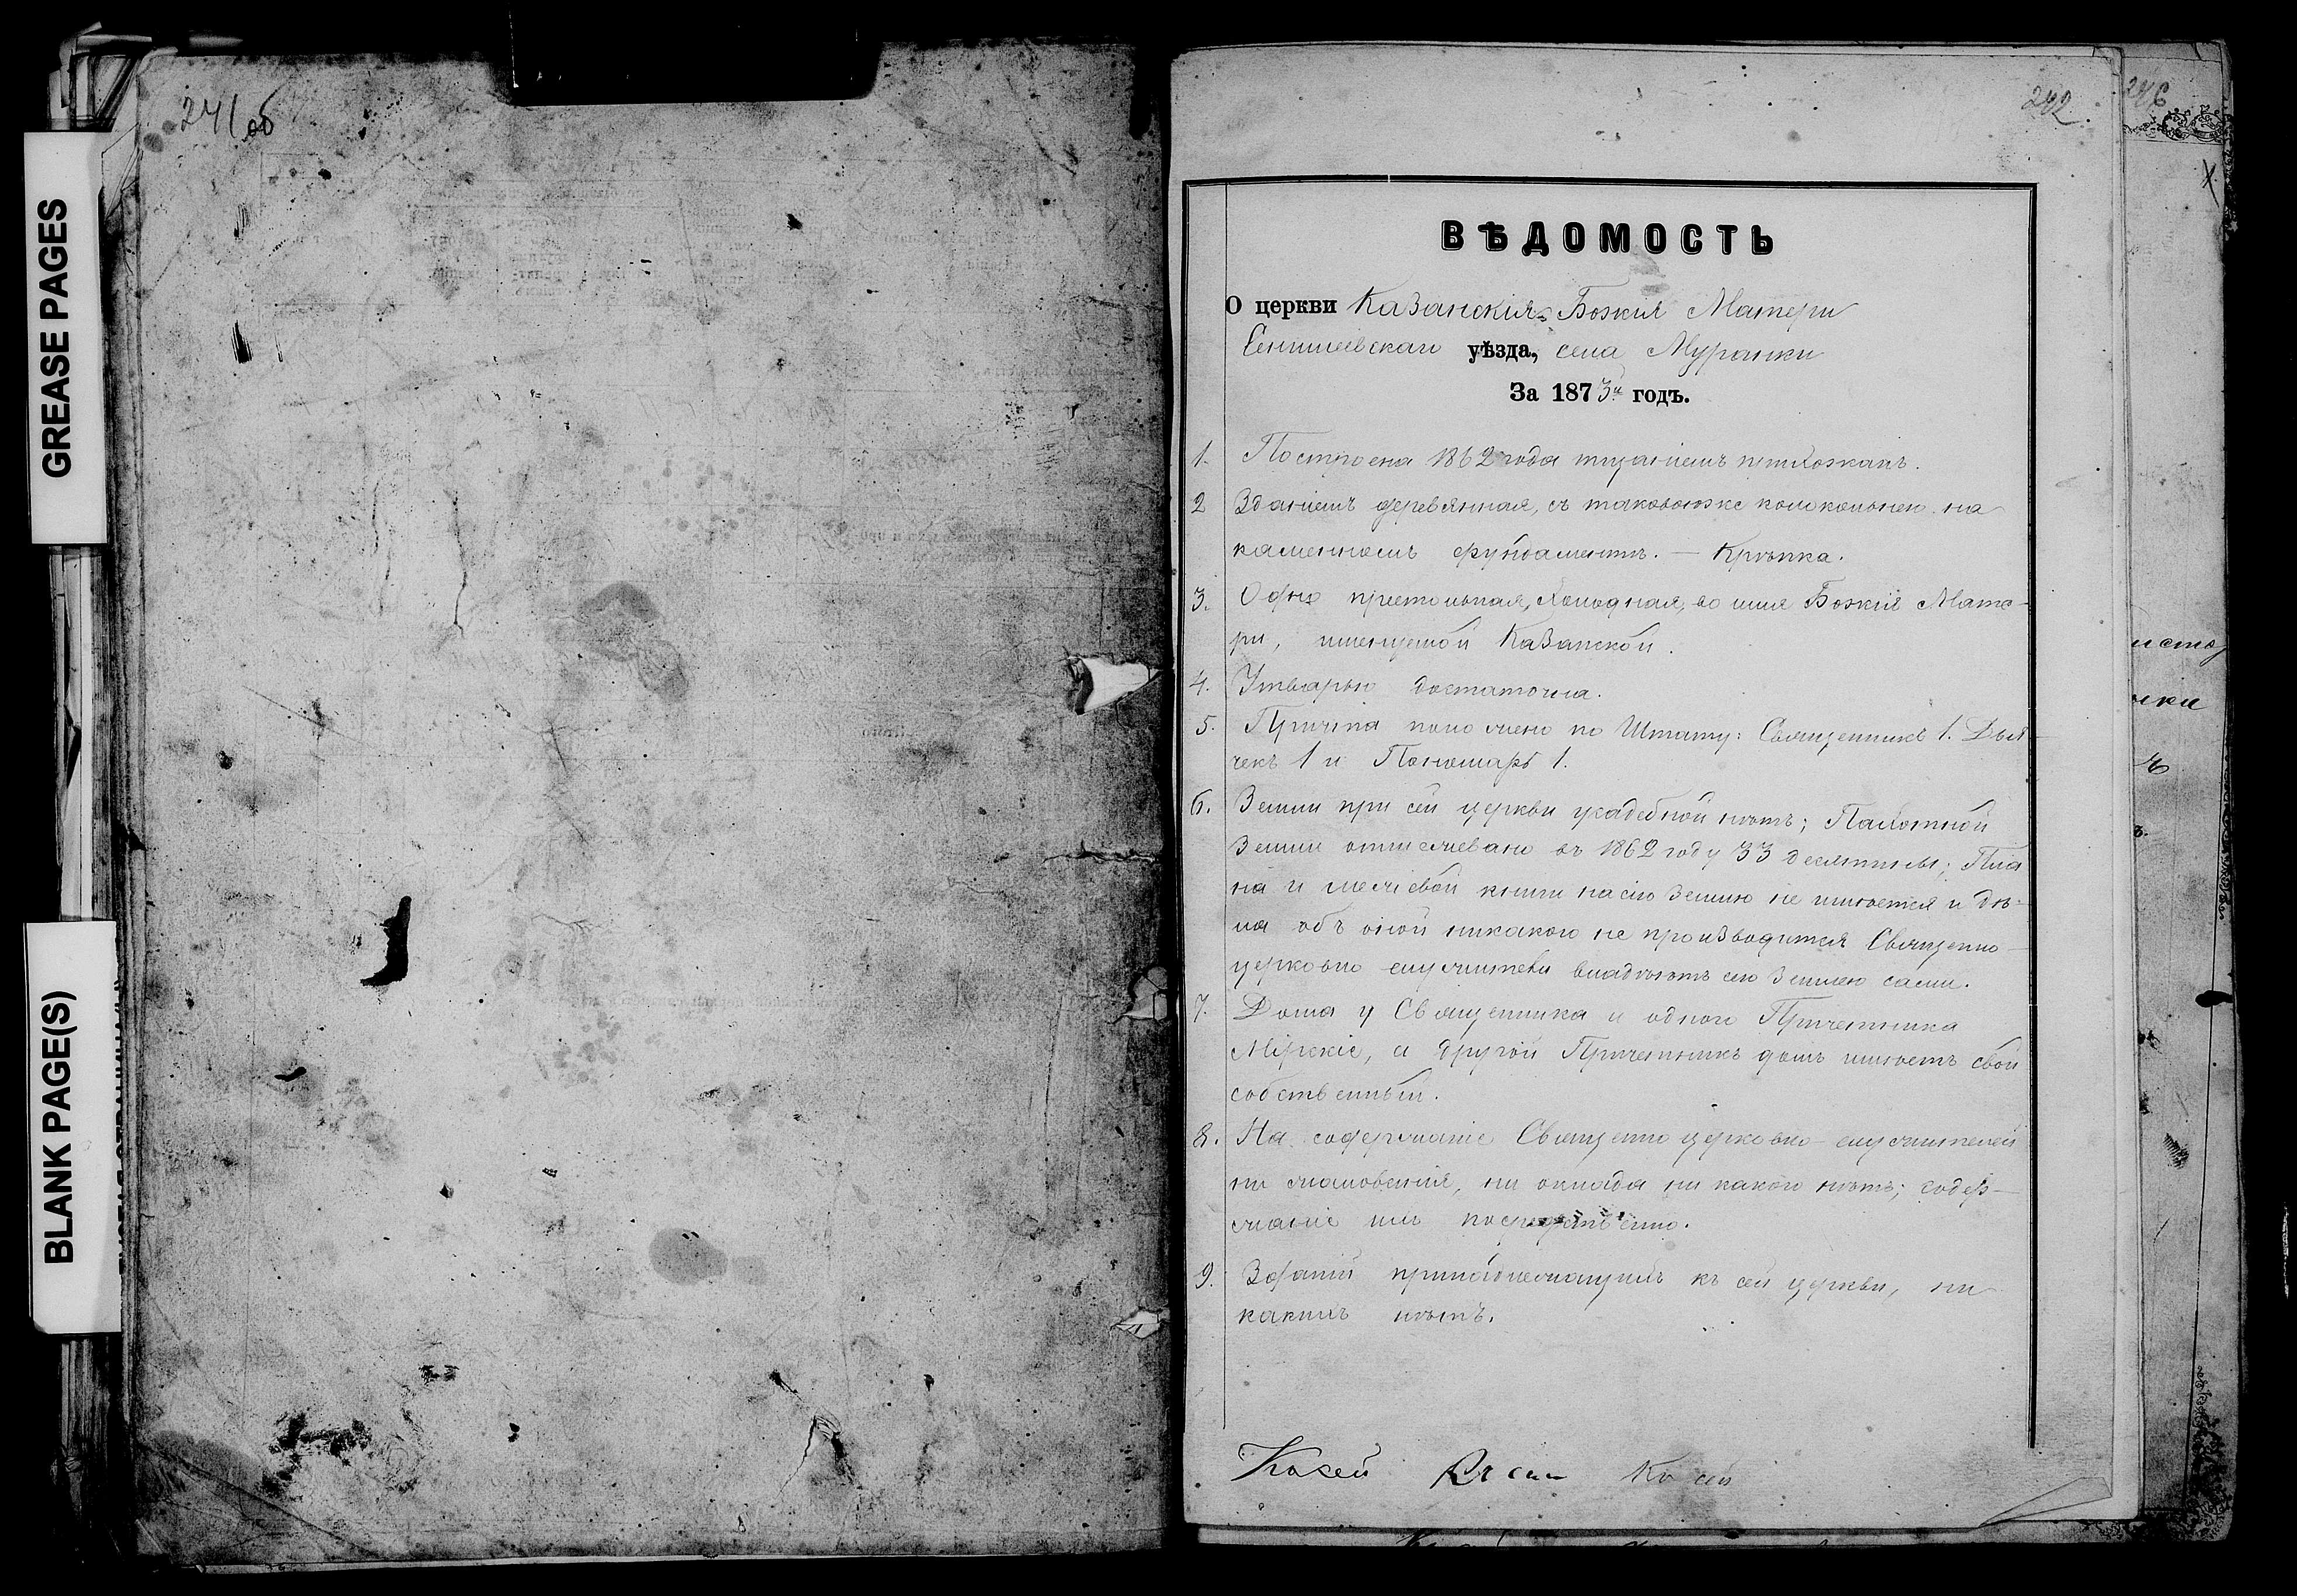 241об
GREASE PAGES
BLANK PAGE(S)
242
246
ВѢДОМОСТЬ
О церкви Казанскія Божія Матери
Сенгилеевскаго уѣзда, села Муранки
За 1873й годъ.
1. Построена 1862 года тщаніемъ прихожанъ.
2 Зданіемъ деревянная, съ таковоюже колокольнею на
каменномъ фундаментѣ. — Крѣпка.
3. Одно престольная, холодная, во имя Божіей Мате-
ри, имянуемой Казанской.
4. Утварью достаточна.
5. Причта положено по Штату: Священникъ 1. Дья-
чекъ 1 и Пономарь 1.
6. Земли при сей церкви усадебной нѣтъ; Пахотной
земли отмежевано въ 1862 году 33 десятины; Пла
на и межевой книги на сію землю не имѣется и дѣ-
ла объ оной никакого не производится Священно-
церковно служители владѣютъ сею землею сами.
7. Дома у Священника и одного Причетника
Мірскіе, а другой Причетникъ домъ имѣетъ свой
собственный.
8. На содержаніе Священно церковно-служителей
ни жалованія, ни оклада ни какого нѣтъ; содер-
жаніе ихъ посредственно.
9. Зданій принадлежащихъ къ сей церкви, ни
какихъ нѣтъ.
Къ сей
исто
лки
ъ.